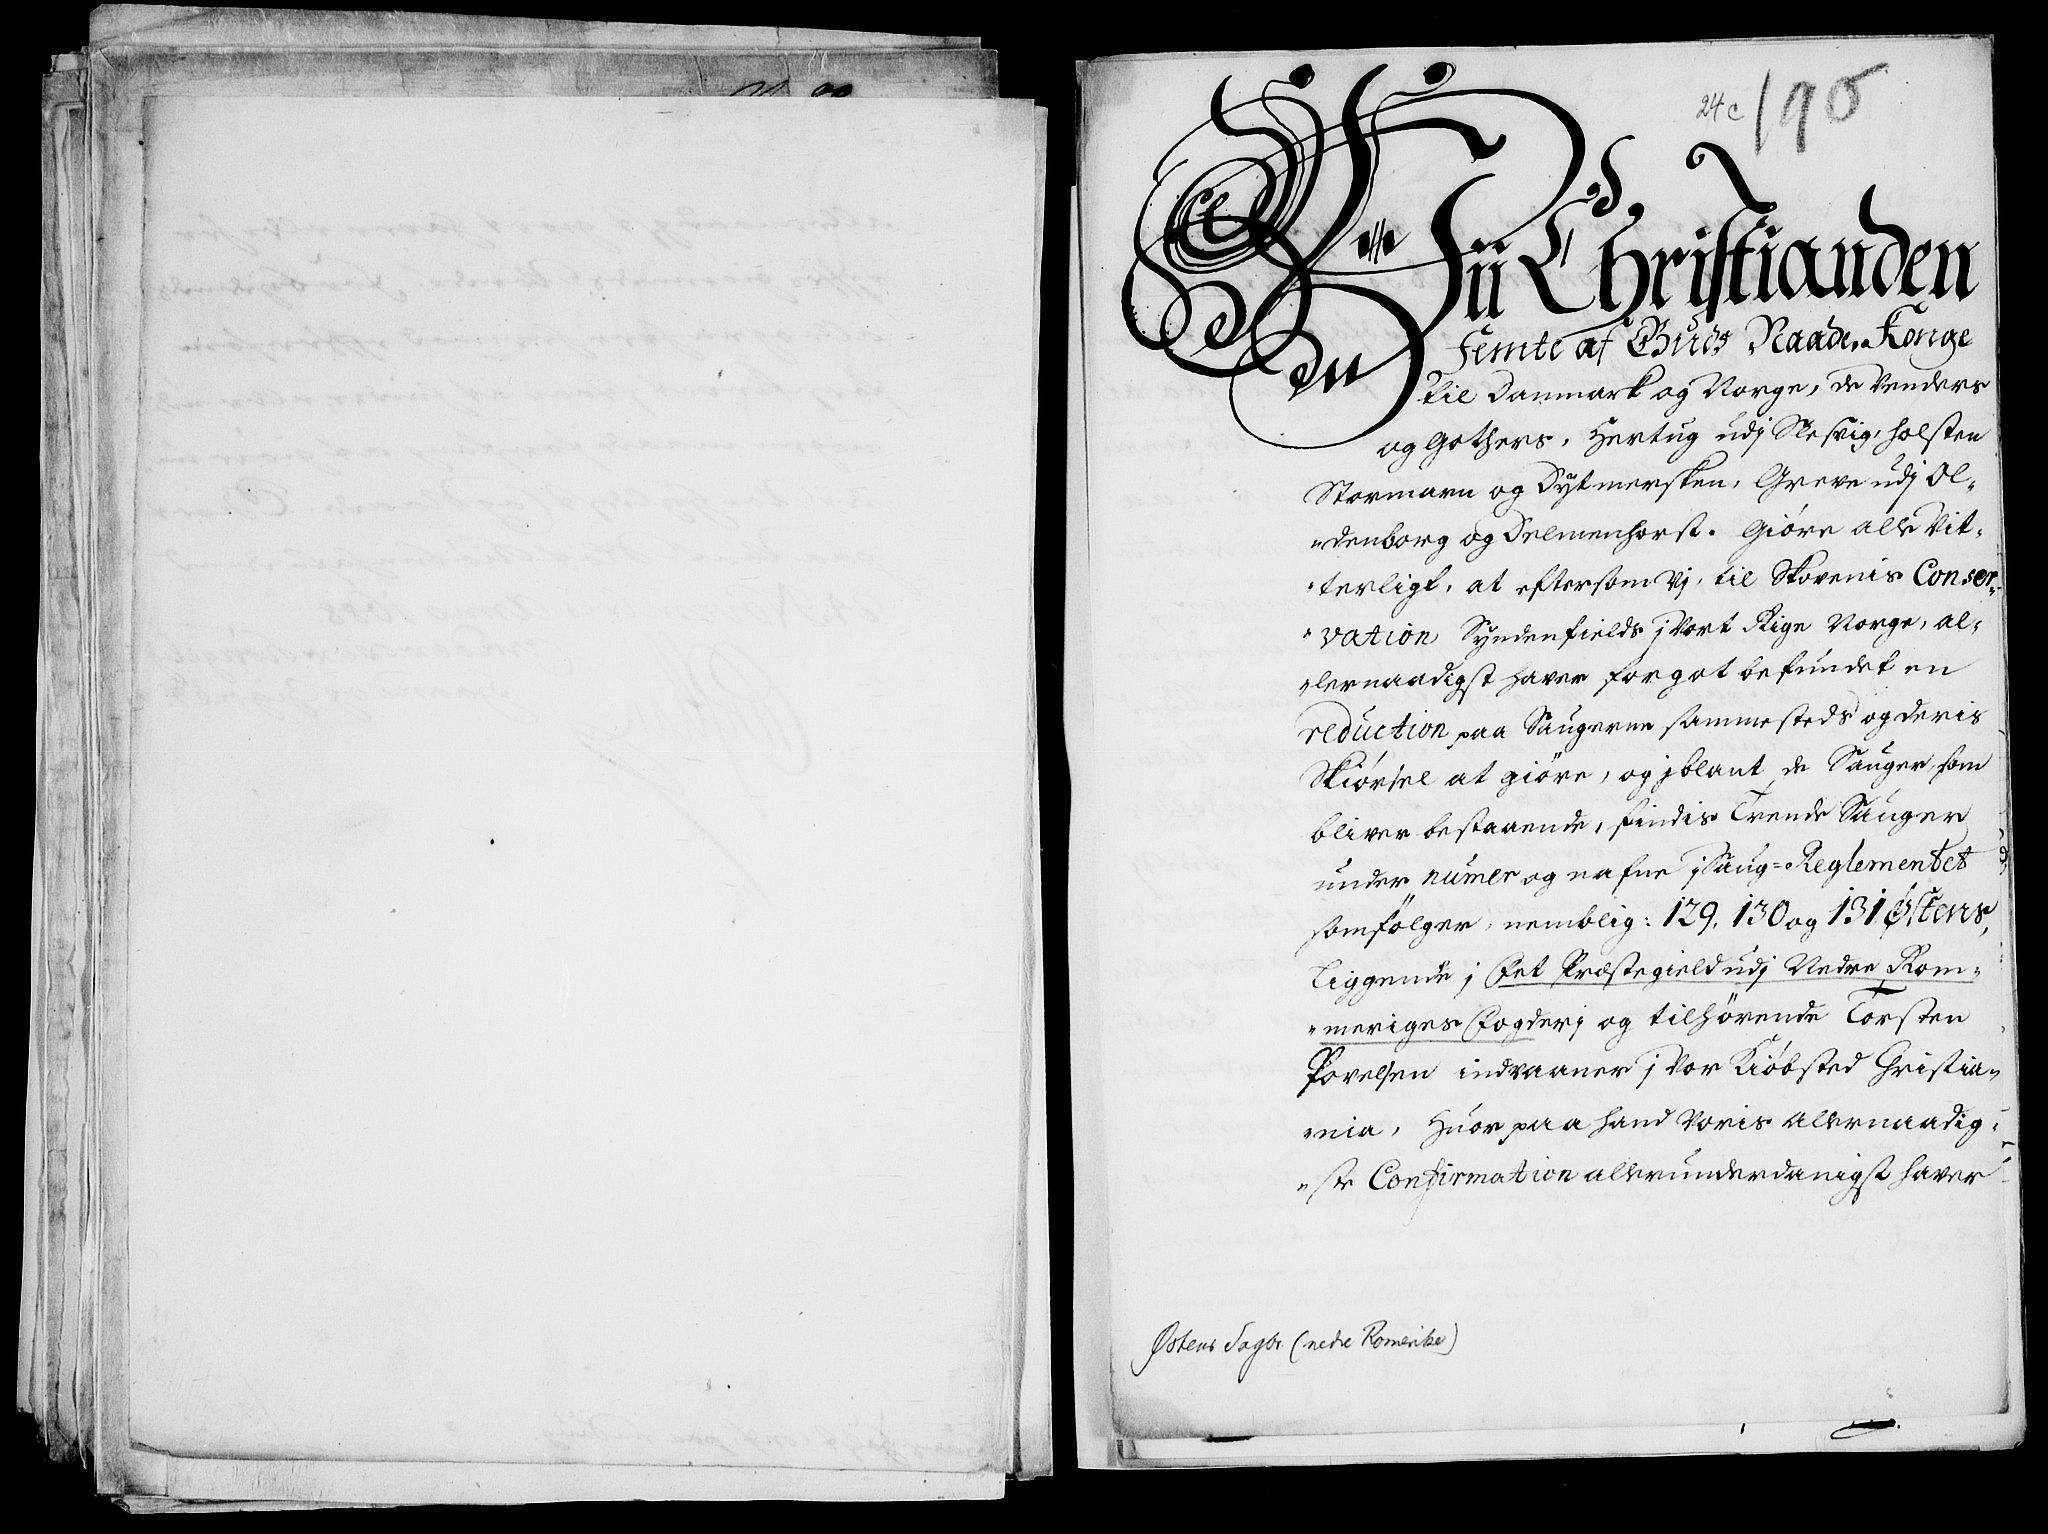 24c 195
Wii Christian den
Femte af Guds Naade, Konge
til Danmark og Norge, de Venders
og Gothers, Hertug udj Slesvig, Holsten
Stormarn og Dytmersken, Greve udj Ol-
denborg og Delmenhorst. Giöre alle Vit-
terligt, at eftersom Vj, til Skovenis Conser-
vation Syndenfields j Vort Rige Norge, al-
lernaadigst haver forgot befundet en
reduction paa Saugerne sammesteds og deris
Skiörsel at giöre, og jblant de Sauger, som
bliver bestaaende, findis Trende Sauger
under numer og nafne j Saug-Reglementet
som fölger, nemblig: 129. 130 og 131 Østens,
liggende j Fet Præstegield udj Nedre Rom-
meriges Fogderj og tilhörende Torsten
Povelsen indvaaner j Vor Kiöbsted Christia-
nia, Huor paa hand Voris Allernaadig-
ste Confirmation allerunderdanigst haver
Østens Sagbr. (nedre Romerike)